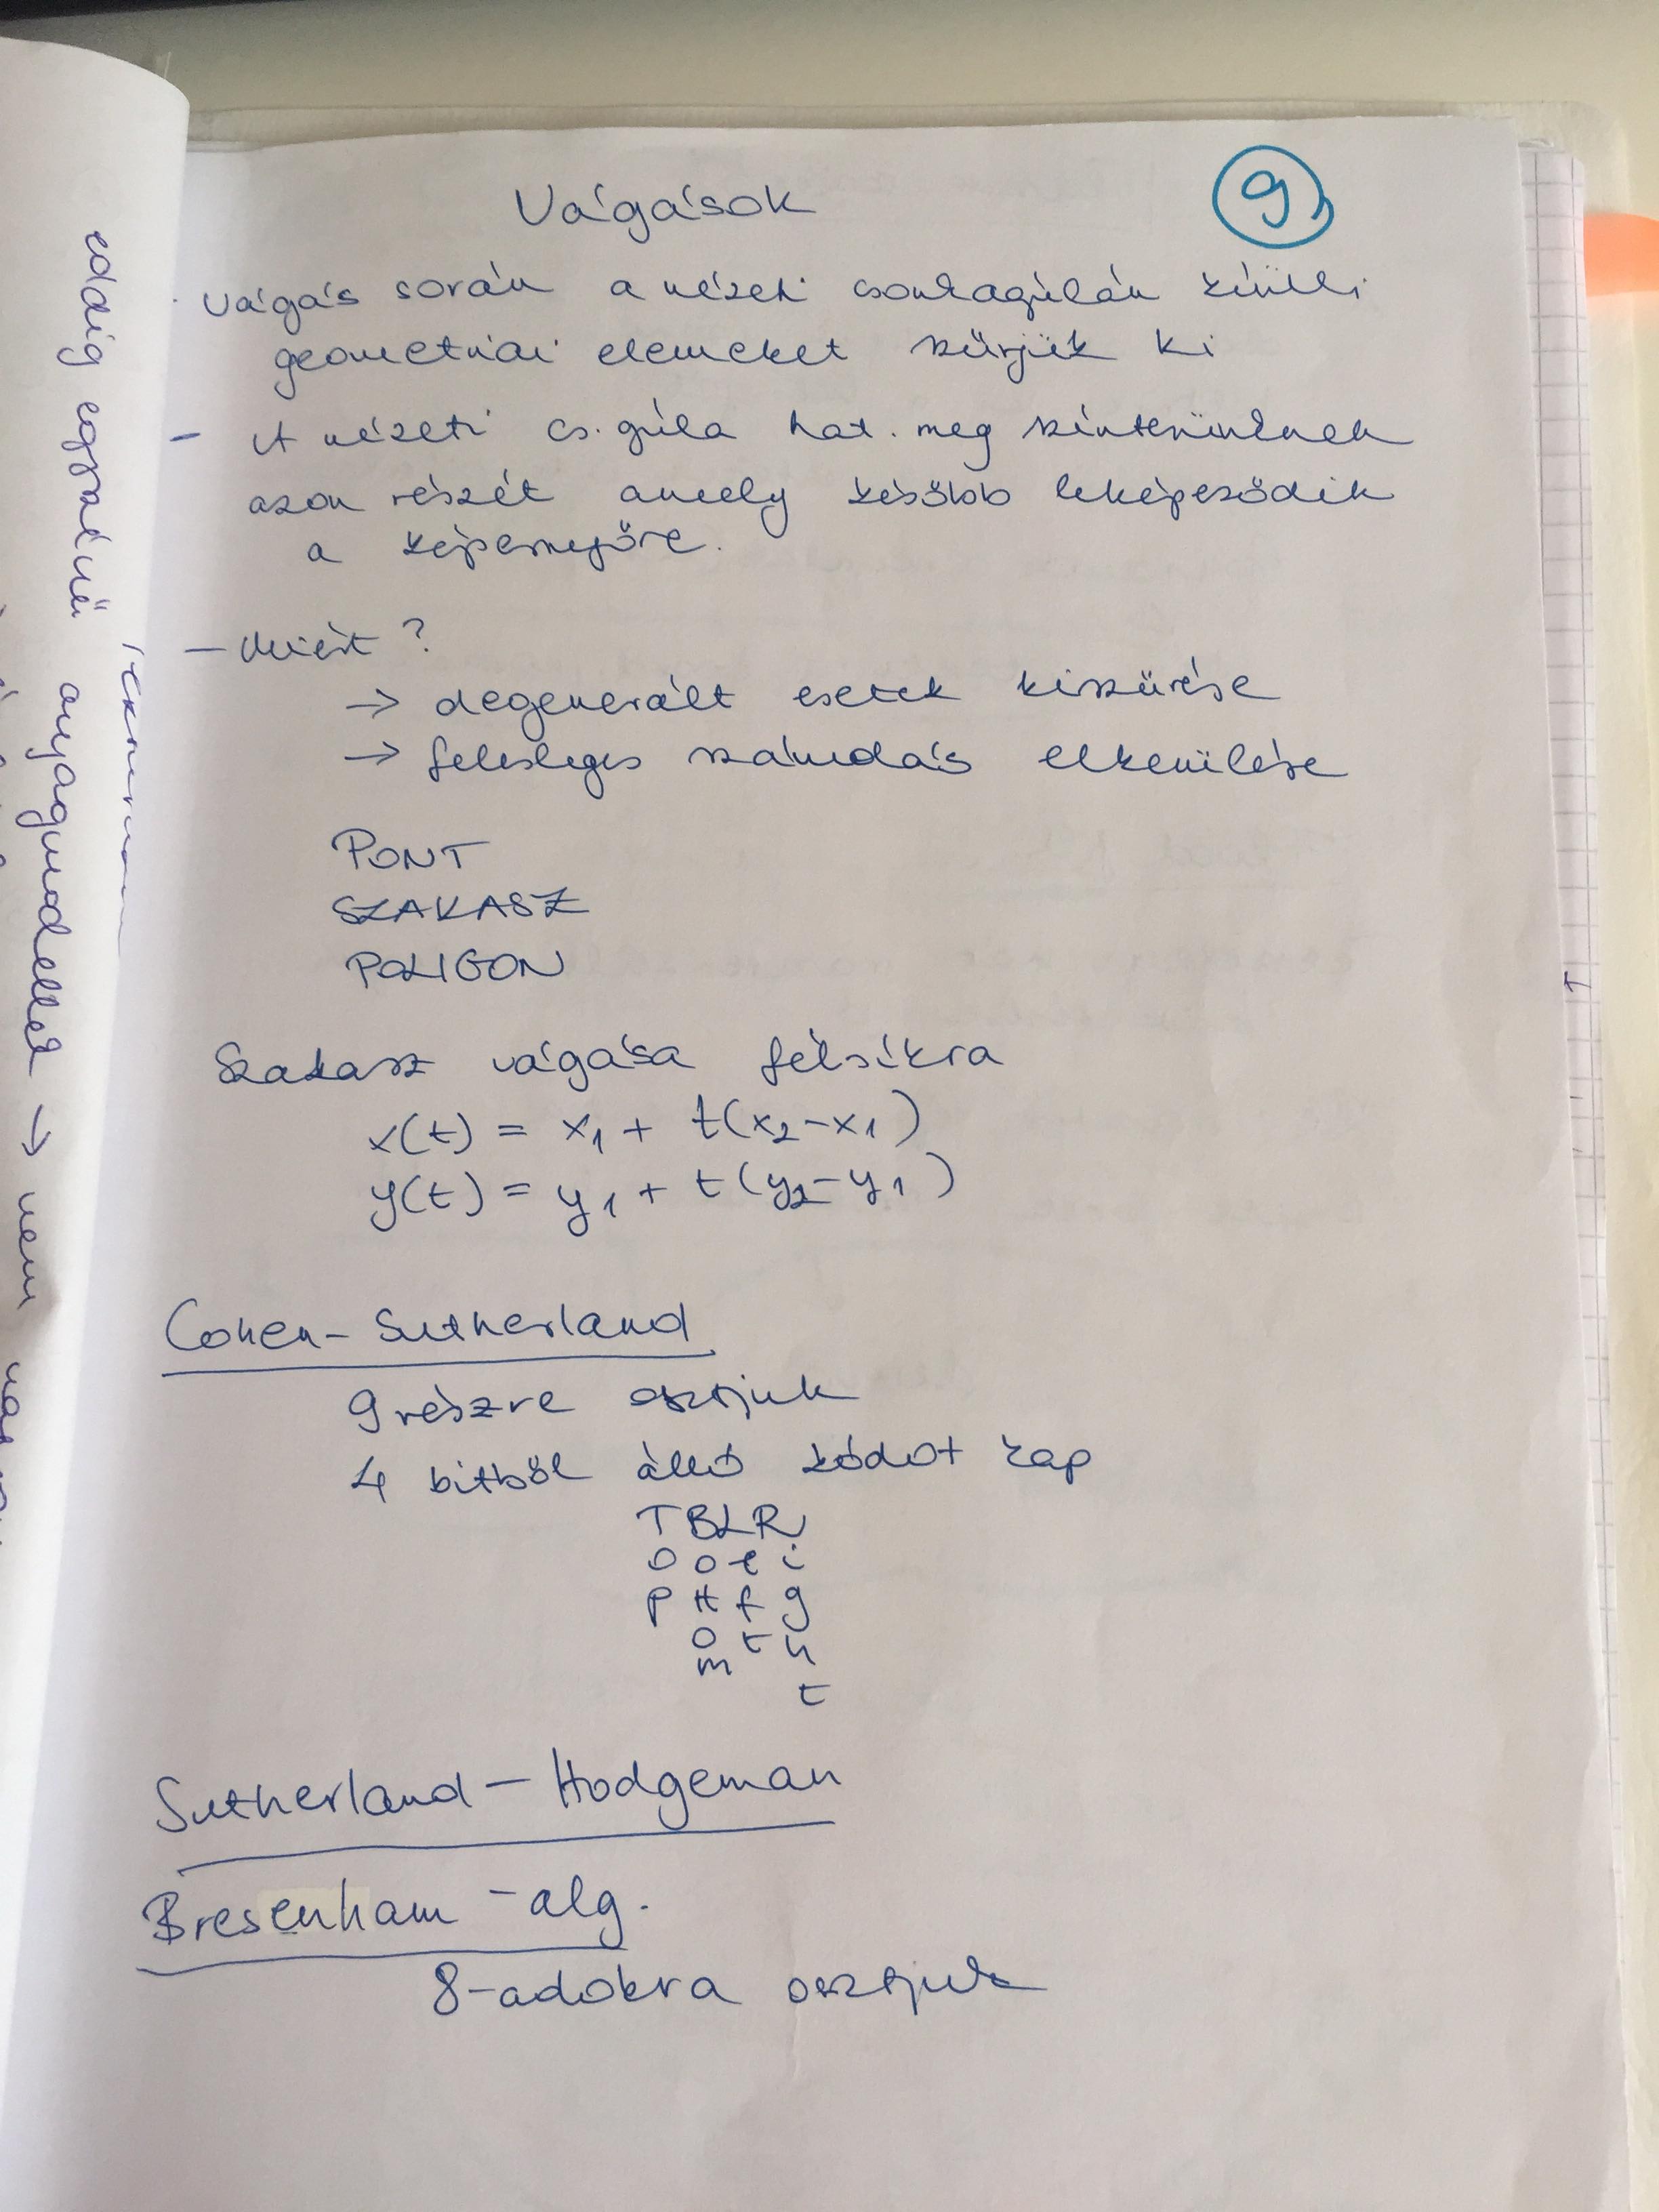 Vágások
9,
- Vágás során a nézeti csonkagúlán kívüli
geometriai elemeket szűrjük ki
- A nézeti cs. gúla hat. meg színterünknek
azon részét amely később leképeződik
a képernyőre.
- Miért ?
→ degenerált esetek kiszűrése
→ felesleges számolás elkerülése
PONT
SZAKASZ
POLIGON
Szakasz vágása félsíkra
x(t) = x1 + t(x2-x1)
y(t) = y1 + t(y2-y1)
Cohen - Sutherland
9 részre osztjuk
4 bitből álló kódot kap
T B L R
o o e i
p tt f g
o t h
m t
Sutherland - Hodgeman
Bresenham - alg.
8-adokra osztjuk
eddig egyszínű anyagmodellek → nem